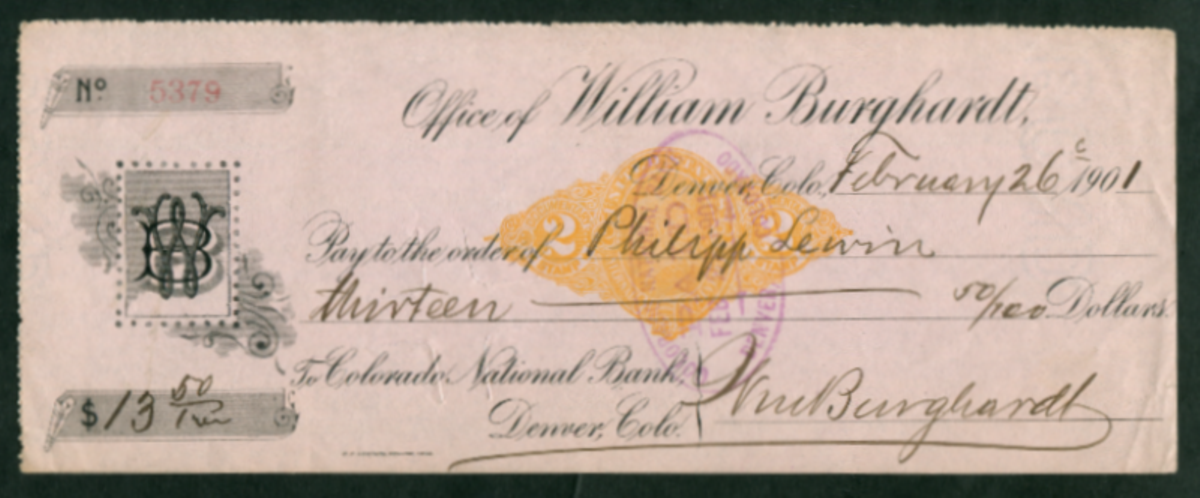 Nº 5379
Office of William Burghardt,
Denver, Colo. February 26 1901
Pay to the order of Philipp Lewin
thirteen 50/100 Dollars.
To Colorado National Bank,
Denver, Colo.
Wm Burghardt
$13 50/100
WB
2 2